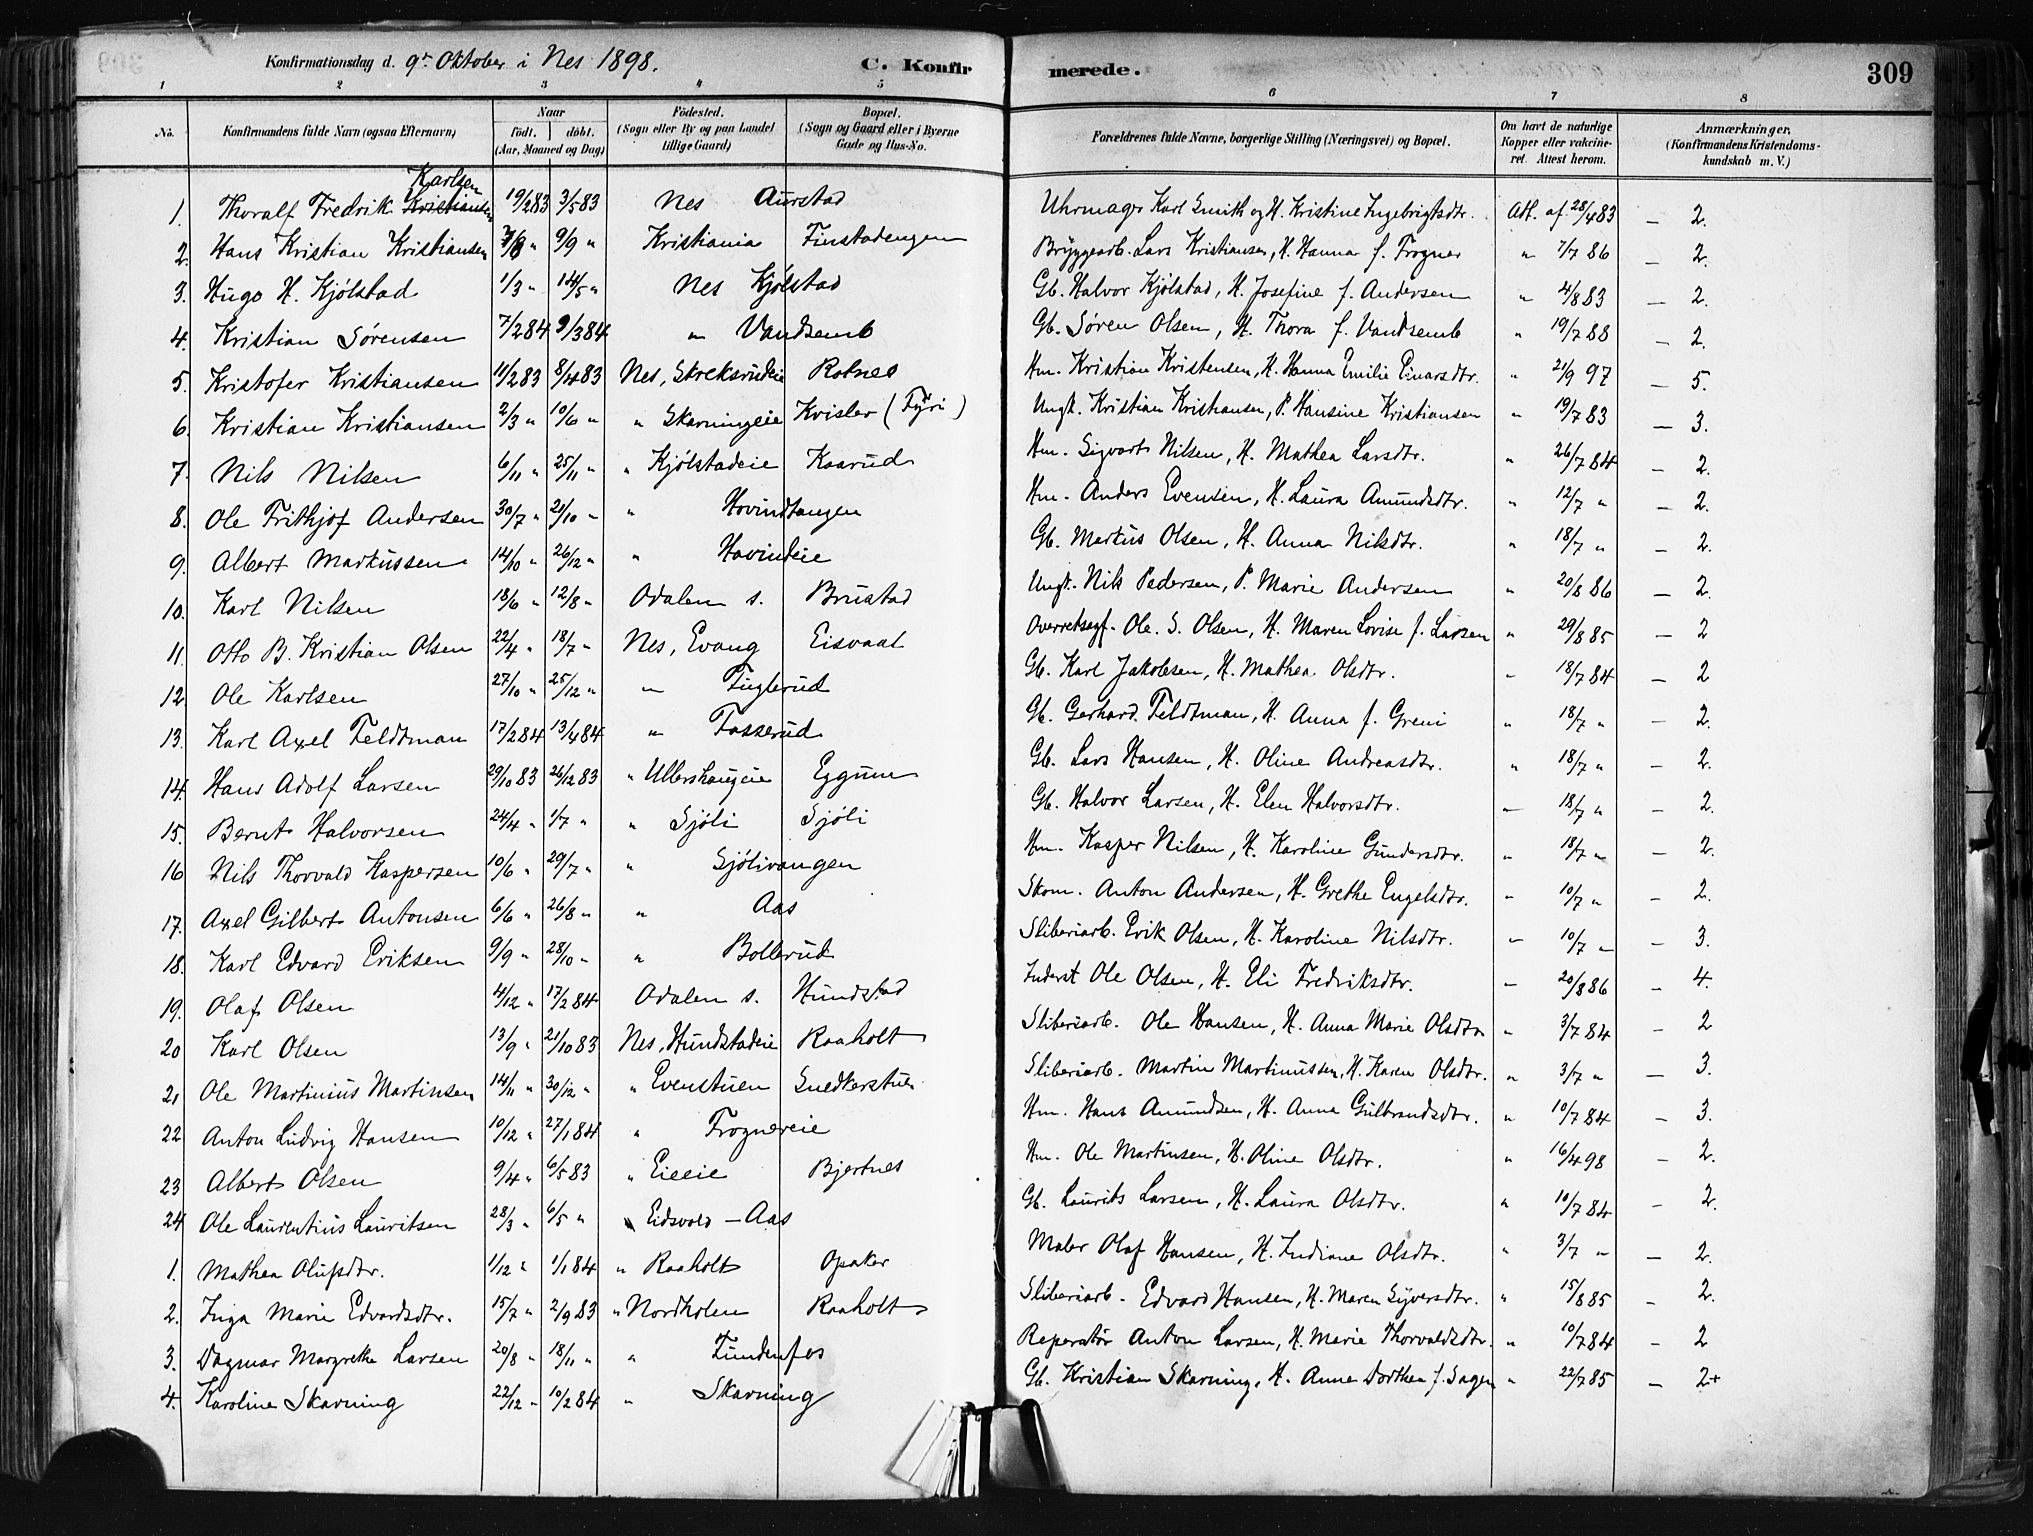 Konfirmationsdag d. 9de Oktober i Nes 1898. C. Konfirmerede. 309
1 2 3 4 5 6 7 8
No. Konfirmandens fulde Navn (ogsaa Efternavn) Naar født. døbt. (Aar, Maaned og Dag) Fødested. (Sogn eller By og paa Landet tillige Gaard) Bopæl. (Sogn og Gaard eller i Byerne Gade og Hus-No. Forældrenes fulde Navne, borgerlige Stilling (Næringsvei) og Bopæl. Om havt de naturlige Kopper eller vakcineret. Attest herom. Anmærkninger. (Konfirmandens Kristendomskundskab m. V.)
Karlsen
1. Thoralf Fredrik Kristiansen 19/2 83 3/5 83 Nes Aurstad Uhrmager Karl Smith og H. Kristine Ingebrigtsdtr. Att. af 28/4 83 — 2.
2. Hans Kristian Kristiansen 7/8 " 9/9 " Kristiania Finstadengen Bryggearb. Lars Kristiansen, H. Hanna f. Frogner " 7/7 86 — 2.
3. Hugo H. Kjølstad 1/3 " 14/5 " Nes Kjølstad Gb. Halvor Kjølstad, H. Josefine f. Andersen " 4/8 83 — 2.
4. Kristian Sørensen 7/2 84 9/3 84 " Vandsemb Gb. Søren Olsen, H. Thora f. Vandsemb " 19/7 88 — 2.
5. Kristofer Kristiansen 11/2 83 8/4 83 Nes, Skreksrudeie Rotnes Hm. Kristian Kristensen, H. Hanna Emilie Einarsdtr. " 21/9 97 — 5.
6. Kristian Kristiansen 2/3 " 10/6 " " Skarningeie Kvisler (Fyri) Ungk. Kristian Kristiansen, P. Hansine Kristiansen " 19/7 83 — 3.
7. Nils Nilsen 6/11 " 25/11 " " Kjølstadeie Kaarud Hm. Sigvart Nilsen, H. Mathea Larsdtr. " 26/7 84 — 2.
8. Ole Frithjof Andersen 30/7 " 21/10 " " Hovindtangen Hm. Anders Evensen, H. Laura Amundsdtr. " 12/7 " — 2.
9. Albert Markussen 14/10 " 26/12 " " Hovindeie Gb. Markus Olsen, H. Anna Nilsdtr. " 18/7 " — 2.
10. Karl Nilsen 18/6 " 12/8 " Odalen s. Brustad Ungk. Nils Pedersen, P. Marie Andersen " 20/8 86 — 2.
11. Otto B. Kristian Olsen 22/4 " 18/7 " Nes, Evang Eisvaal Overretssagf. Ole S. Olsen, H. Maren Lovise f. Larsen " 29/8 85 — 2
12 Ole Karlsen 27/10 " 25/12 " " Fuglerud Gb. Karl Jakobsen, H. Mathea Olsdtr. " 18/7 84 — 2
13. Karl Axel Feldtman 17/2 84 13/4 84 " Fosserud Gb. Gerhard Feldtman, H. Anna f. Greni " 18/7 " — 2.
14. Hans Adolf Larsen 29/10 83 26/12 83 " Ullershaugeie Eggum Gb. Lars Hansen, H. Oline Andreasdtr. " 18/7 " — 2.
15. Bernt Halvorsen 24/4 " 1/7 " " Sjøli Sjøli Gb. Halvor Larsen, H. Elen Halvorsdtr. " 18/7 " — 2.
16 Nils Thorvald Kaspersen 10/6 " 29/7 " " Sjølivangen Hm. Kasper Nilsen, H. Karoline Gundersdtr. " 18/7 " — 2.
17. Axel Gilbert Antonsen 6/6 " 26/8 " " Aas Skom. Anton Andersen, H. Grethe Engelsdtr. " 10/7 " — 2.
18. Karl Edvard Eriksen 9/9 " 28/10 " " Bollerud Sliberiarb. Erik Olsen, H. Karoline Nilsdtr. " 10/7 " — 3.
19. Olaf Olsen 4/12 " 17/2 84 Odalen s. Hundstad Inderst Ole Olsen, H. Eli Fredriksdtr. " 20/8 86 — 4.
20 Karl Olsen 13/9 " 21/10 83 Nes, Hundstadeie Raaholt Sliberiarb. Ole Hansen, H. Anna Marie Olsdtr " 3/7 84 — 2
21 Ole Martinius Martinsen 14/11 " 30/12 " " Evenstuen Snedkerstuen Sliberiarb. Martin Martinussen, H. Karen Olsdtr. " 3/7 " — 3.
22 Anton Ludvig Hansen 10/12 " 27/1 84 " Frognereie Hm. Hans Amundsen, H. Anna Gulbrandsdtr. " 10/7 84 — 3.
23 Albert Olsen 9/4 " 6/5 83 " Eieeie Bjertnes Hm. Ole Martinsen, H. Oline Olsdtr. " 16/4 98 — 2.
24 Ole Laurentius Lauritsen 28/3 " 6/5 " Eidsvold — Aas Gb. Laurits Larsen, H. Laura Olsdtr. " 10/7 84 — 2.
1. Mathea Olufsdtr. 1/12 " 1/1 84 " Raaholt Opaker Maler Olaf Hansen, H. Indiane Olsdtr. " 3/7 " — 2.
2. Inga Marie Edvardsdtr. 15/7 " 2/9 83 " Nordholen Raaholt Sliberiarb. Edvard Hansen, H. Maren Syversdtr. " 15/8 85 — 2.
3. Dagmar Margrethe Larsen 20/8 " 18/11 " " Fundenfos Reperatør Anton Larsen, H. Marie Thorvaldsdtr. " 10/7 84 — 2
4. Karoline Skarning 22/12 " 10/2 84 " Skarning Gb. Kristian Skarning, H. Anne Dorthea f. Sagen " 22/7 85 — 2+